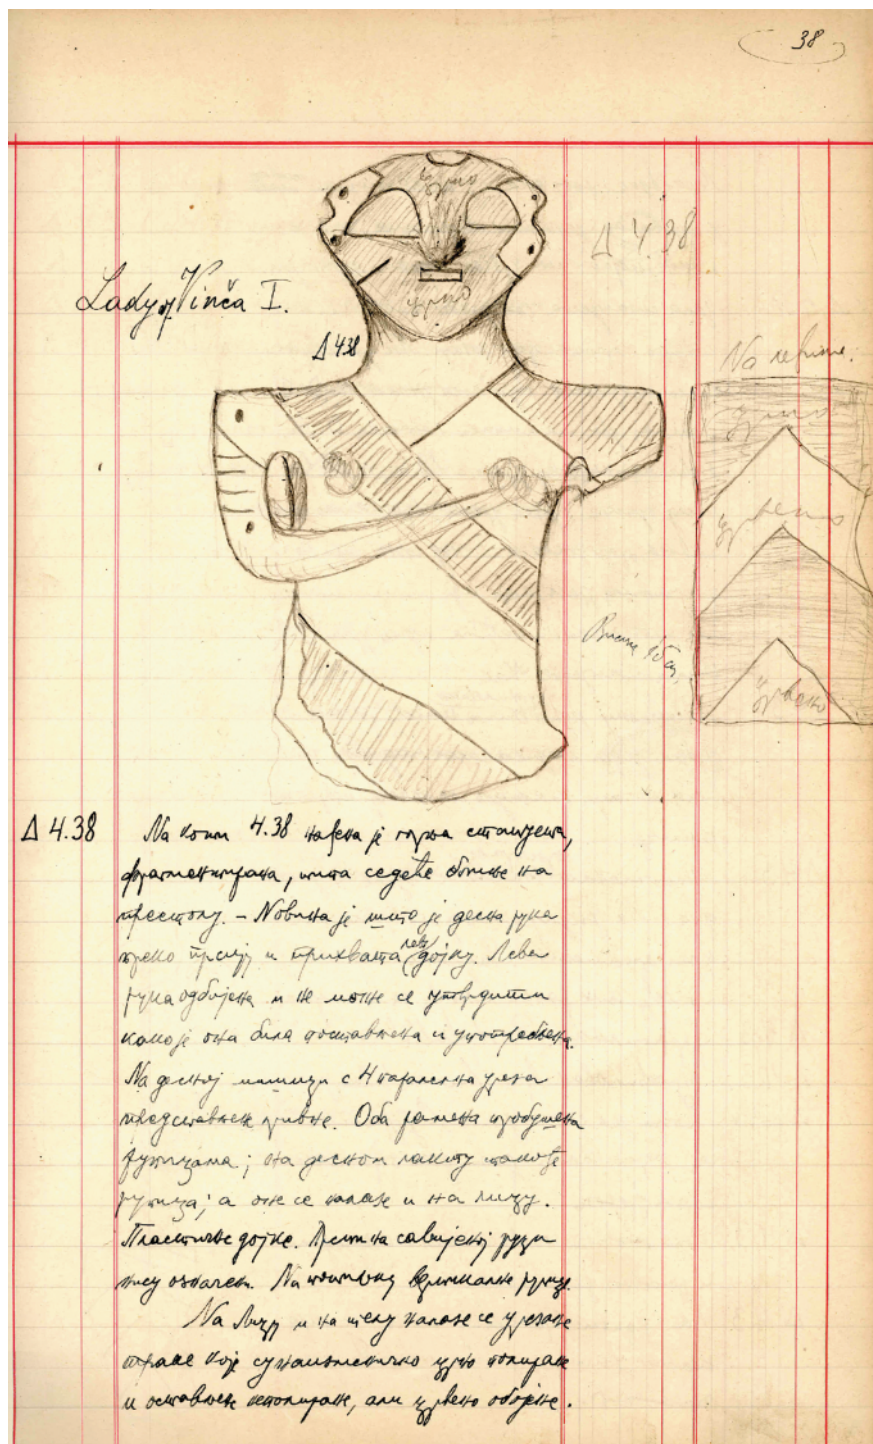 38
црно
Δ 4.38
црно
Lady of Vinča I.
Δ 4.38
На леђима:
црно
црвено
Висина 15 cm.
црвено
Δ 4.38 На коти 4.38 нађена је горња статуета,
фрагментирана, типа седеће богиње на
престолу. – Новина је што је десна рука
преко прсију и прихвата леву дојку. Лева
рука одбијена и не може се утврдити
како је она била постављена и употребљена.
На десној мишици с 4 паралелна уреза
представљене гривне. Оба рамена пробушена
рупицама; на десном лакту такође
рупица; а оне се налазе и на лицу.
Пластичне дојке. Прсти на савијеној руци
нису означени. На потиљку вертикалне рупице.
На лицу и на телу налазе се урезане
траке које су наизменично црно полиране
и остављене неполиране, али црвено обојене.